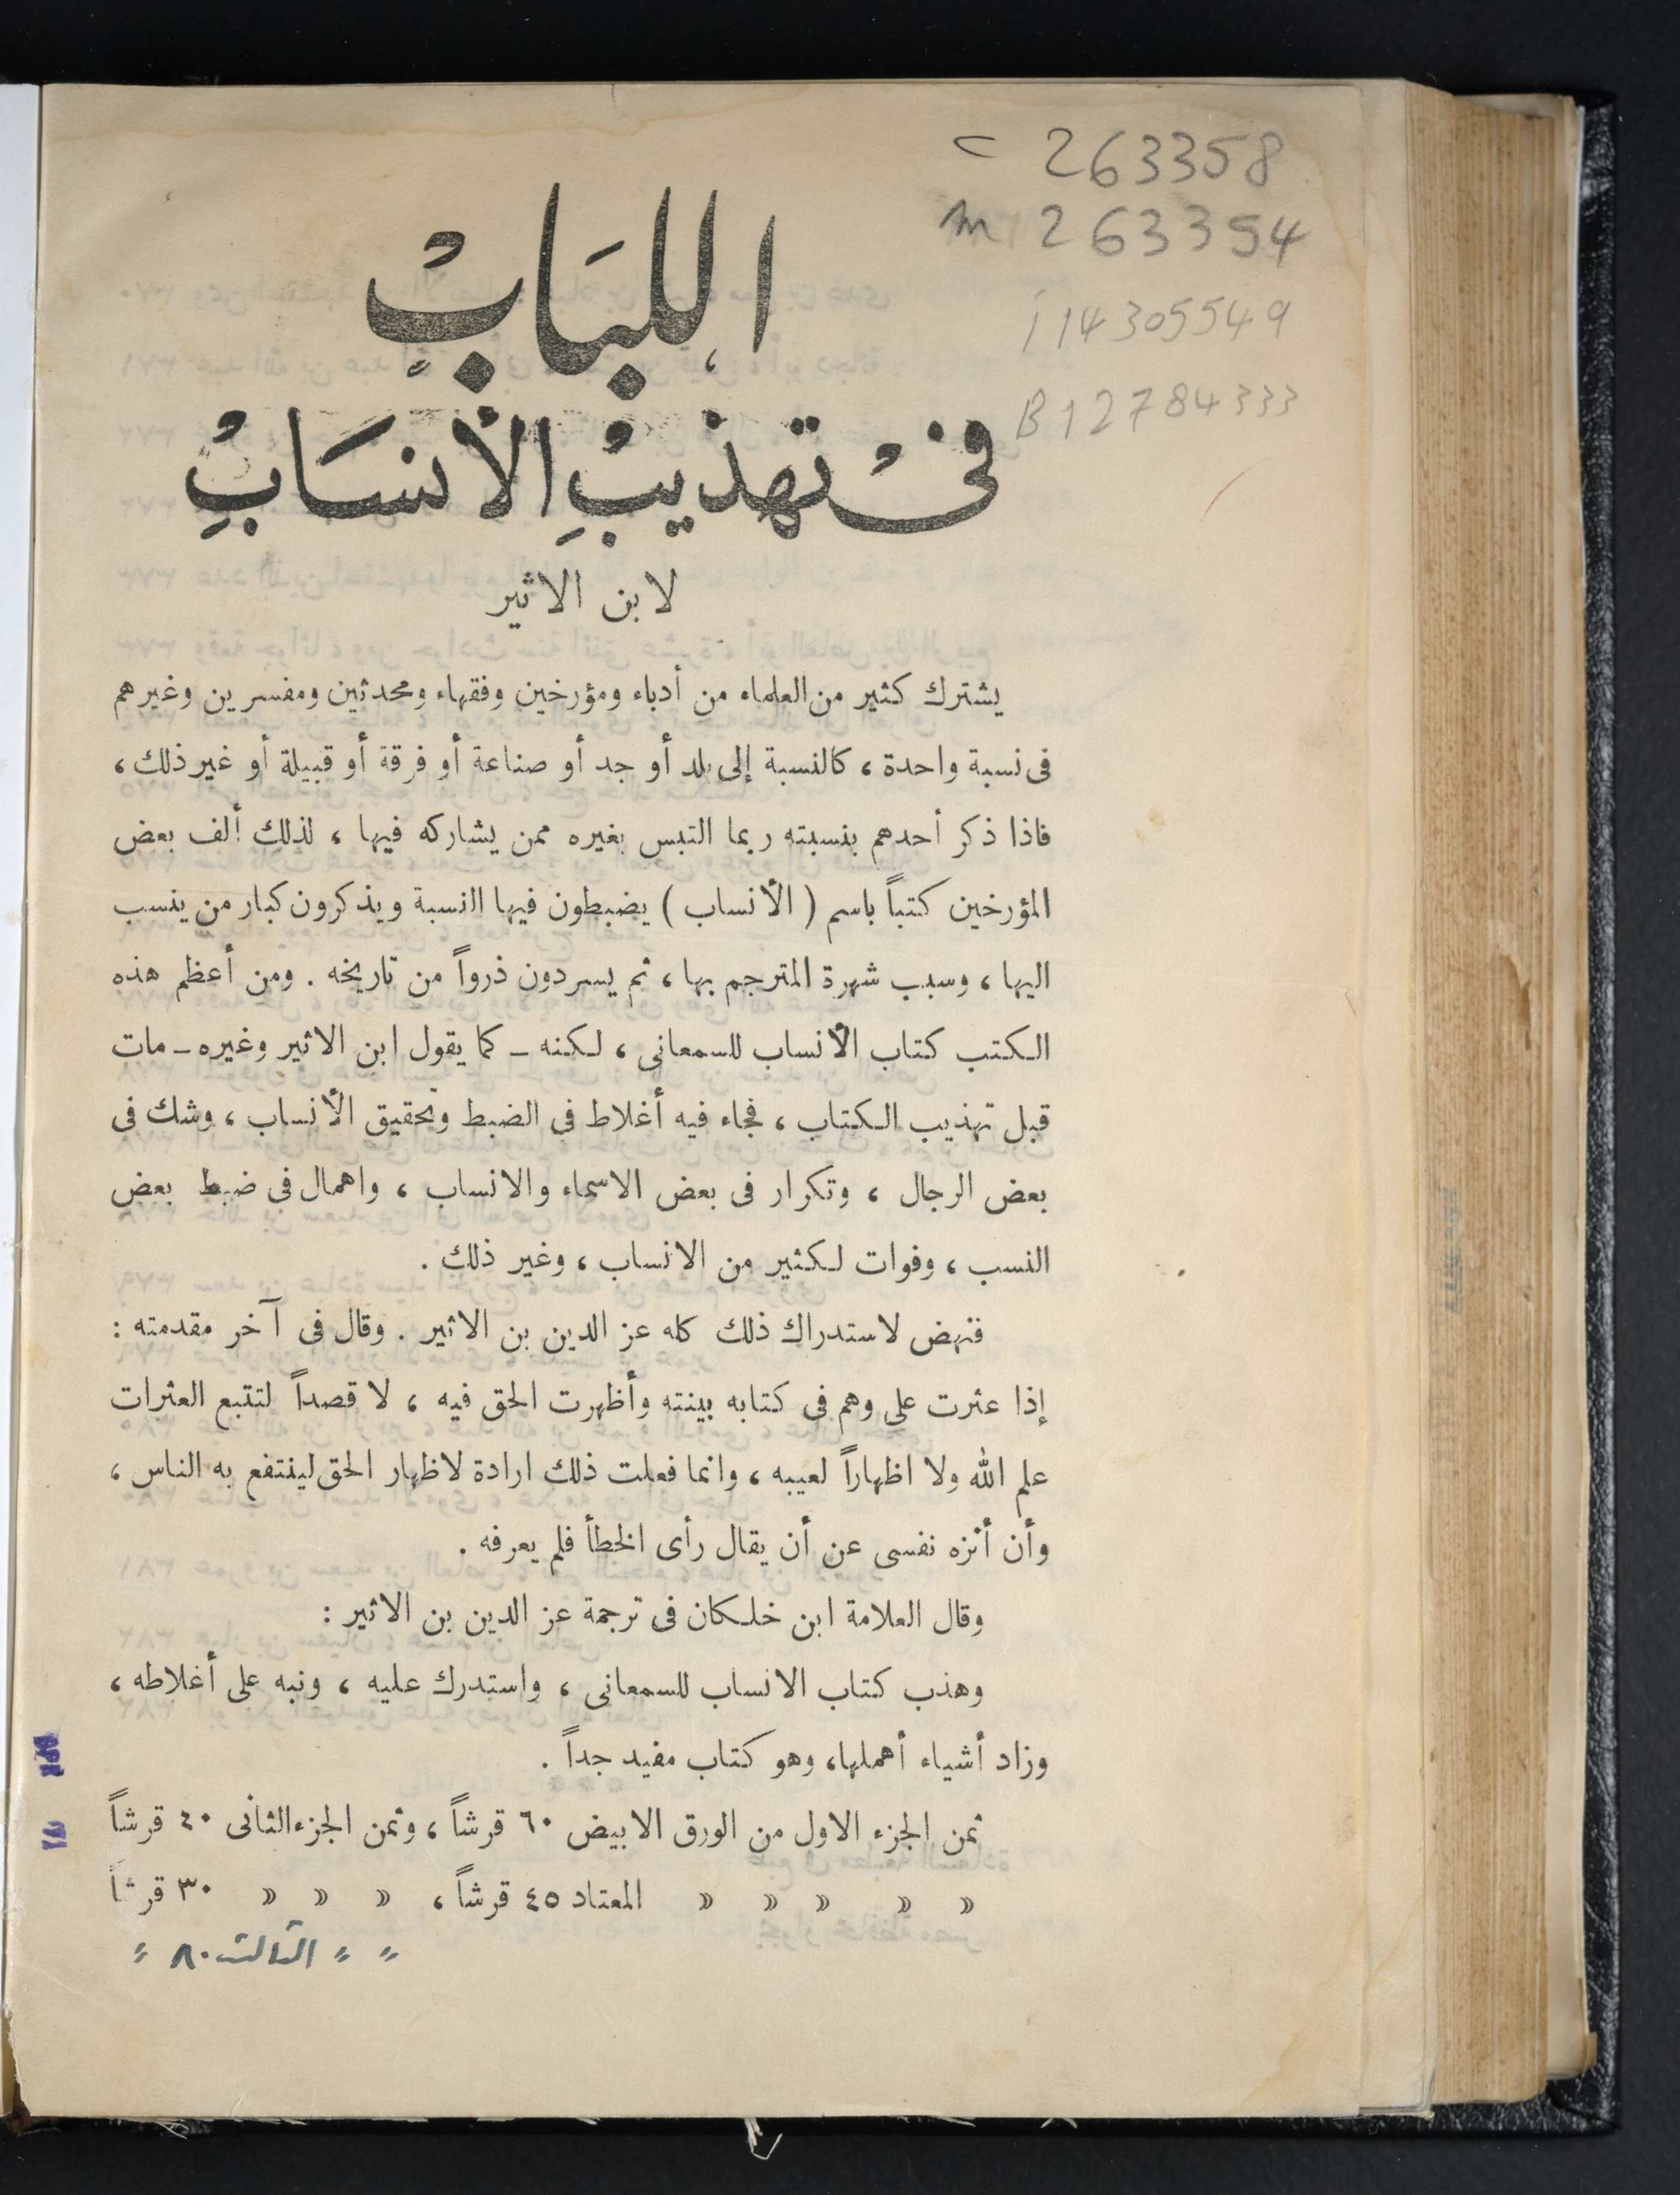 c 263358
m 263354
i 14305549
B12784333
اللباب
في تهذيب الأنساب
لابن الاثير
يشترك كثير من العلماء من أدباء ومؤرخين وفقهاء ومحدثين ومفسرين وغيرهم
فى نسبة واحدة ، كالنسبة إلى بلد أو جد أو صناعة أو فرقة أو قبيلة أو غير ذلك ،
فاذا ذكر أحدهم بنسبته ربما التبس بغيره ممن يشاركه فيها ، لذلك ألف بعض
المؤرخين كتباً باسم ( الأنساب ) يضبطون فيها النسبة ويذكرون كبار من ينسب
اليها ، وسبب شهرة المترجم بها ، ثم يسردون ذرواً من تاريخه . ومن أعظم هذه
الكتب كتاب الأنساب للسمعانى ، لكنه ـ كما يقول ابن الاثير وغيره ـ مات
قبل تهذيب الكتاب ، فجاء فيه أغلاط فى الضبط وتحقيق الأنساب ، وشك فى
بعض الرجال ، وتكرار فى بعض الاسماء والانساب ، واهمال فى ضبط بعض
النسب ، وفوات لكثير من الانساب ، وغير ذلك .
فنهض لاستدراك ذلك كله عز الدين بن الاثير . وقال فى آخر مقدمته :
إذا عثرت على وهم فى كتابه بينته وأظهرت الحق فيه ، لا قصداً لتتبع العثرات
علم الله ولا اظهاراً لعيبه ، وانما فعلت ذلك ارادة لاظهار الحق لينتفع به الناس ،
وأن أنزه نفسى عن أن يقال رأى الخطأ فلم يعرفه .
وقال العلامة ابن خلكان فى ترجمة عز الدين بن الاثير :
وهذب كتاب الانساب للسمعانى ، واستدرك عليه ، ونبه على أغلاطه ،
وزاد أشياء أهملها، وهو كتاب مفيد جداً .
ثمن الجزء الاول من الورق الابيض ٦٠ قرشاً ، وثمن الجزء الثانى ٤٠ قرشاً
» » » » » المعتاد ٤٥ قرشاً ، » » » ٣٠ قرشاً
" " الثالث ٨٠ "